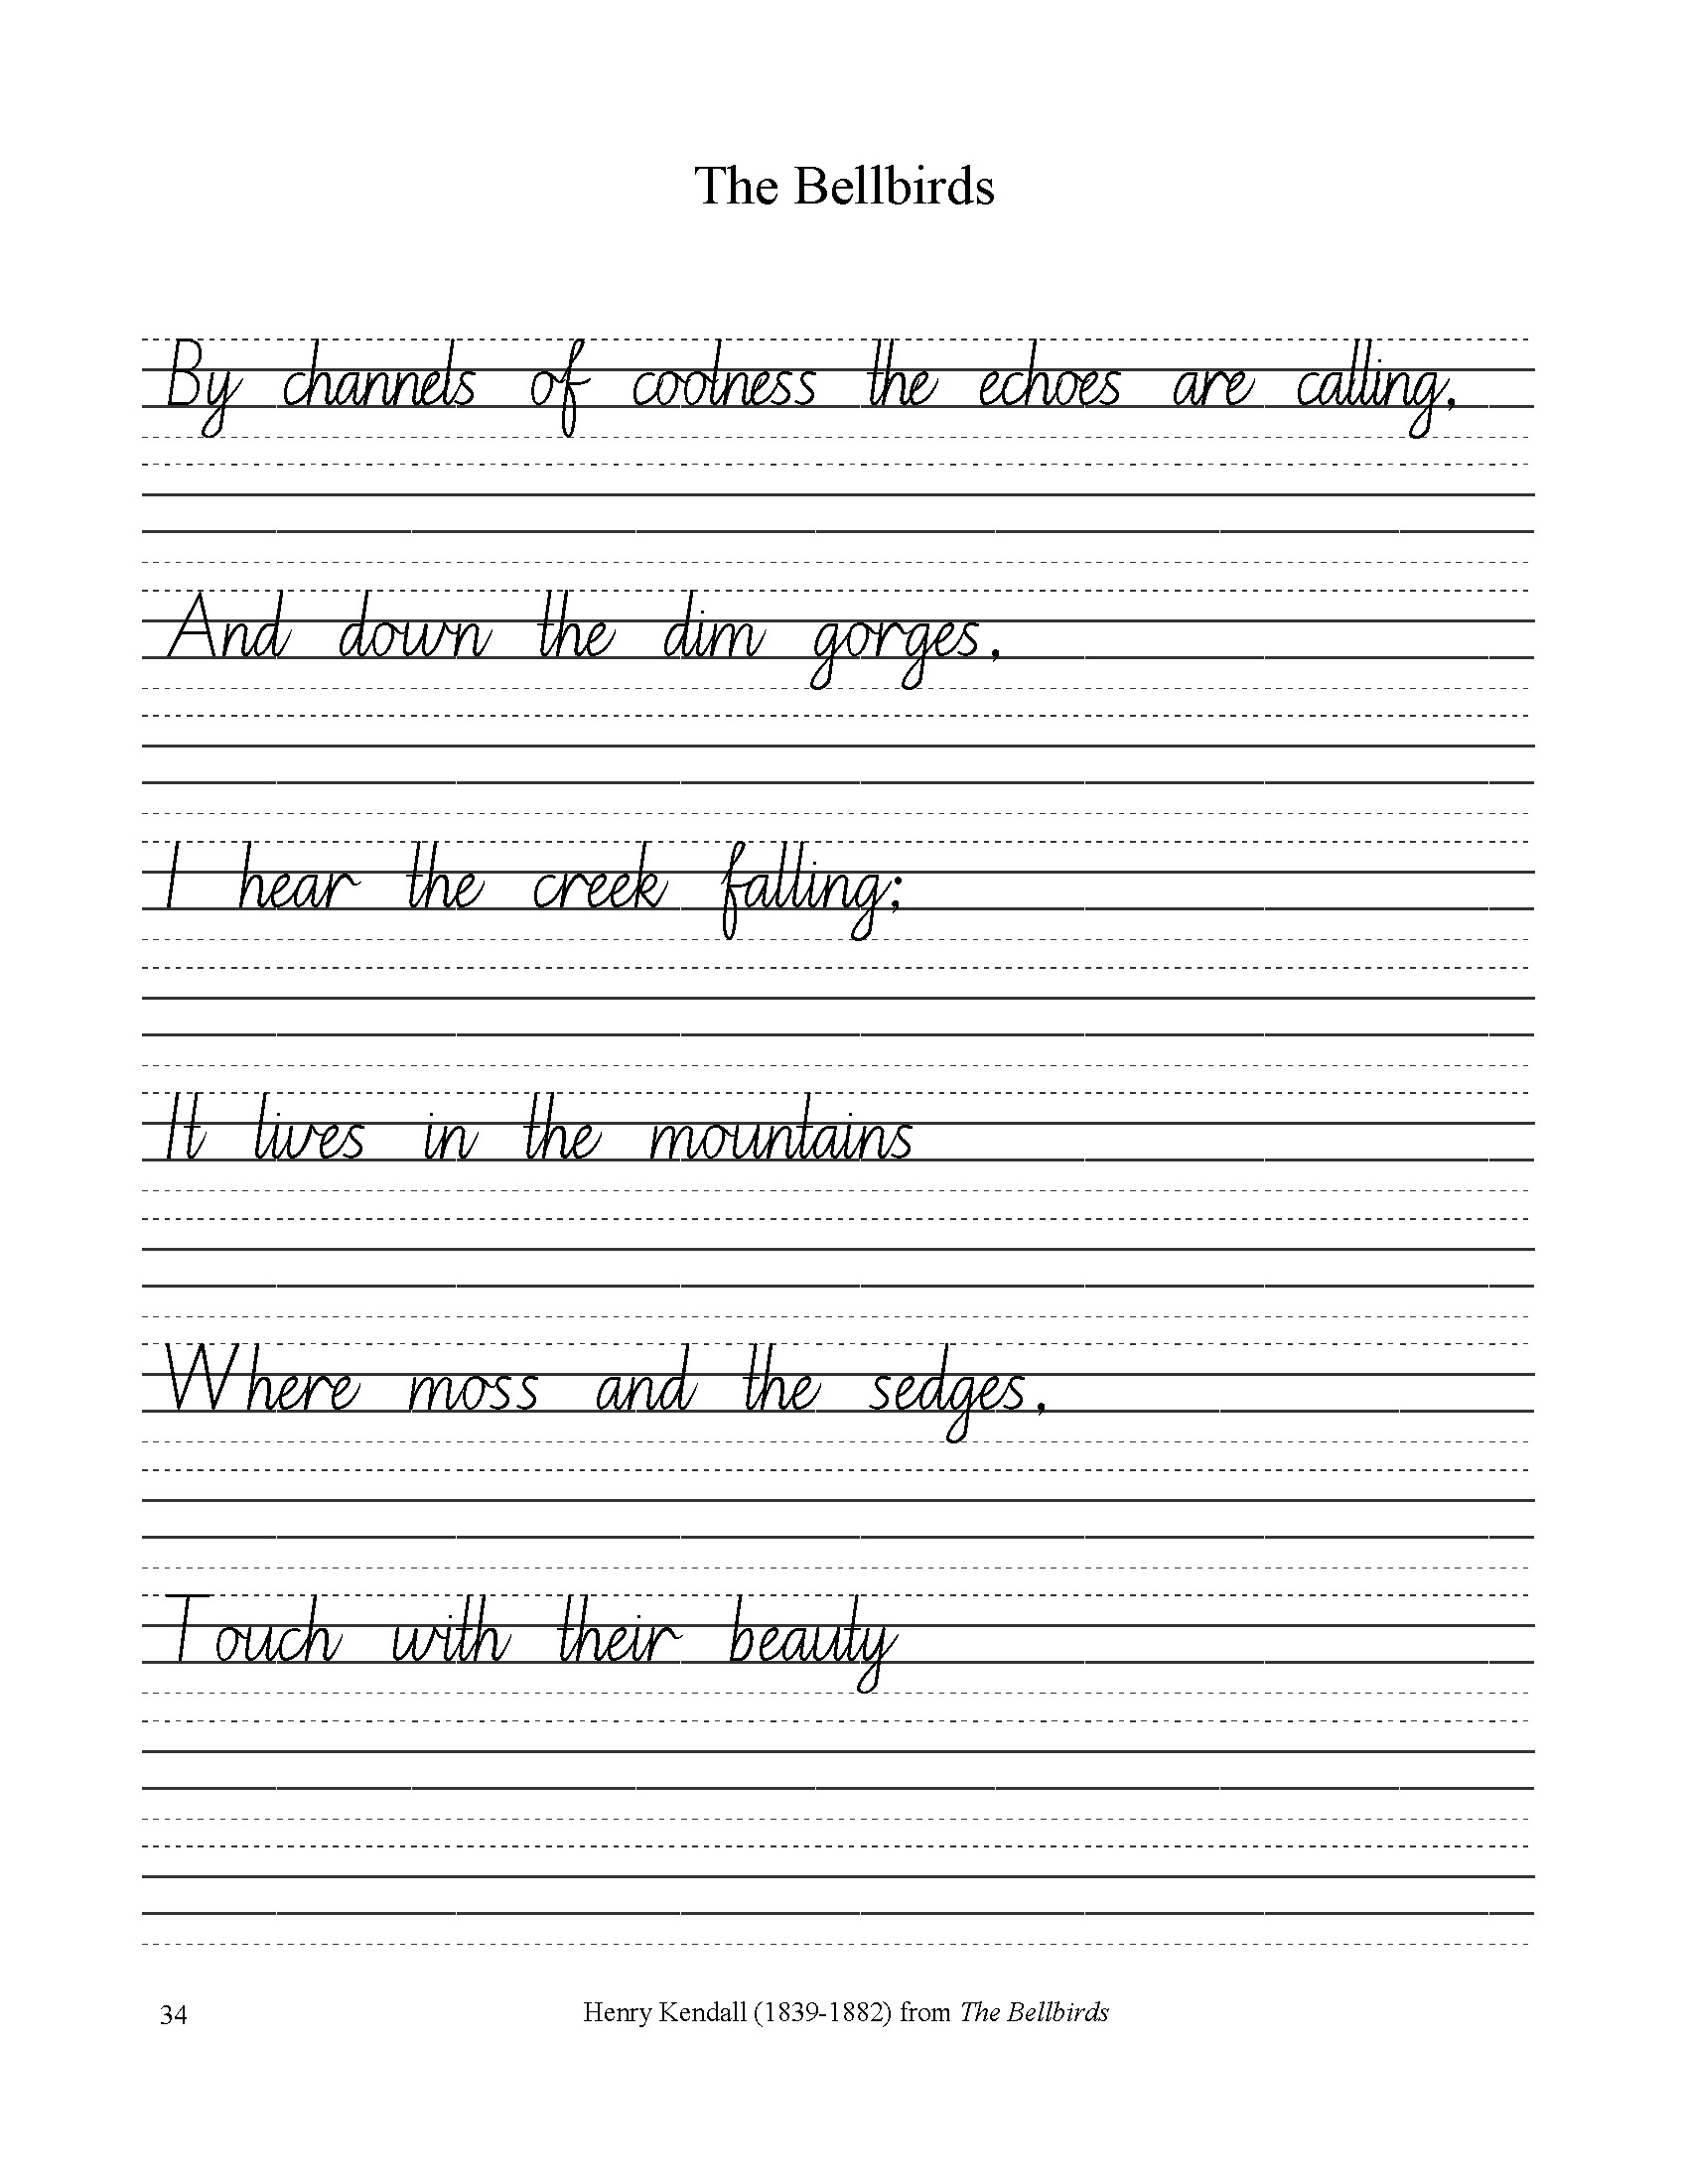 The Bellbirds
By channels of coolness the echoes are calling,
And down the dim gorges,
I hear the creek falling;
It lives in the mountains
Where moss and the sedges,
Touch with their beauty
34
Henry Kendall (1839-1882) from The Bellbirds